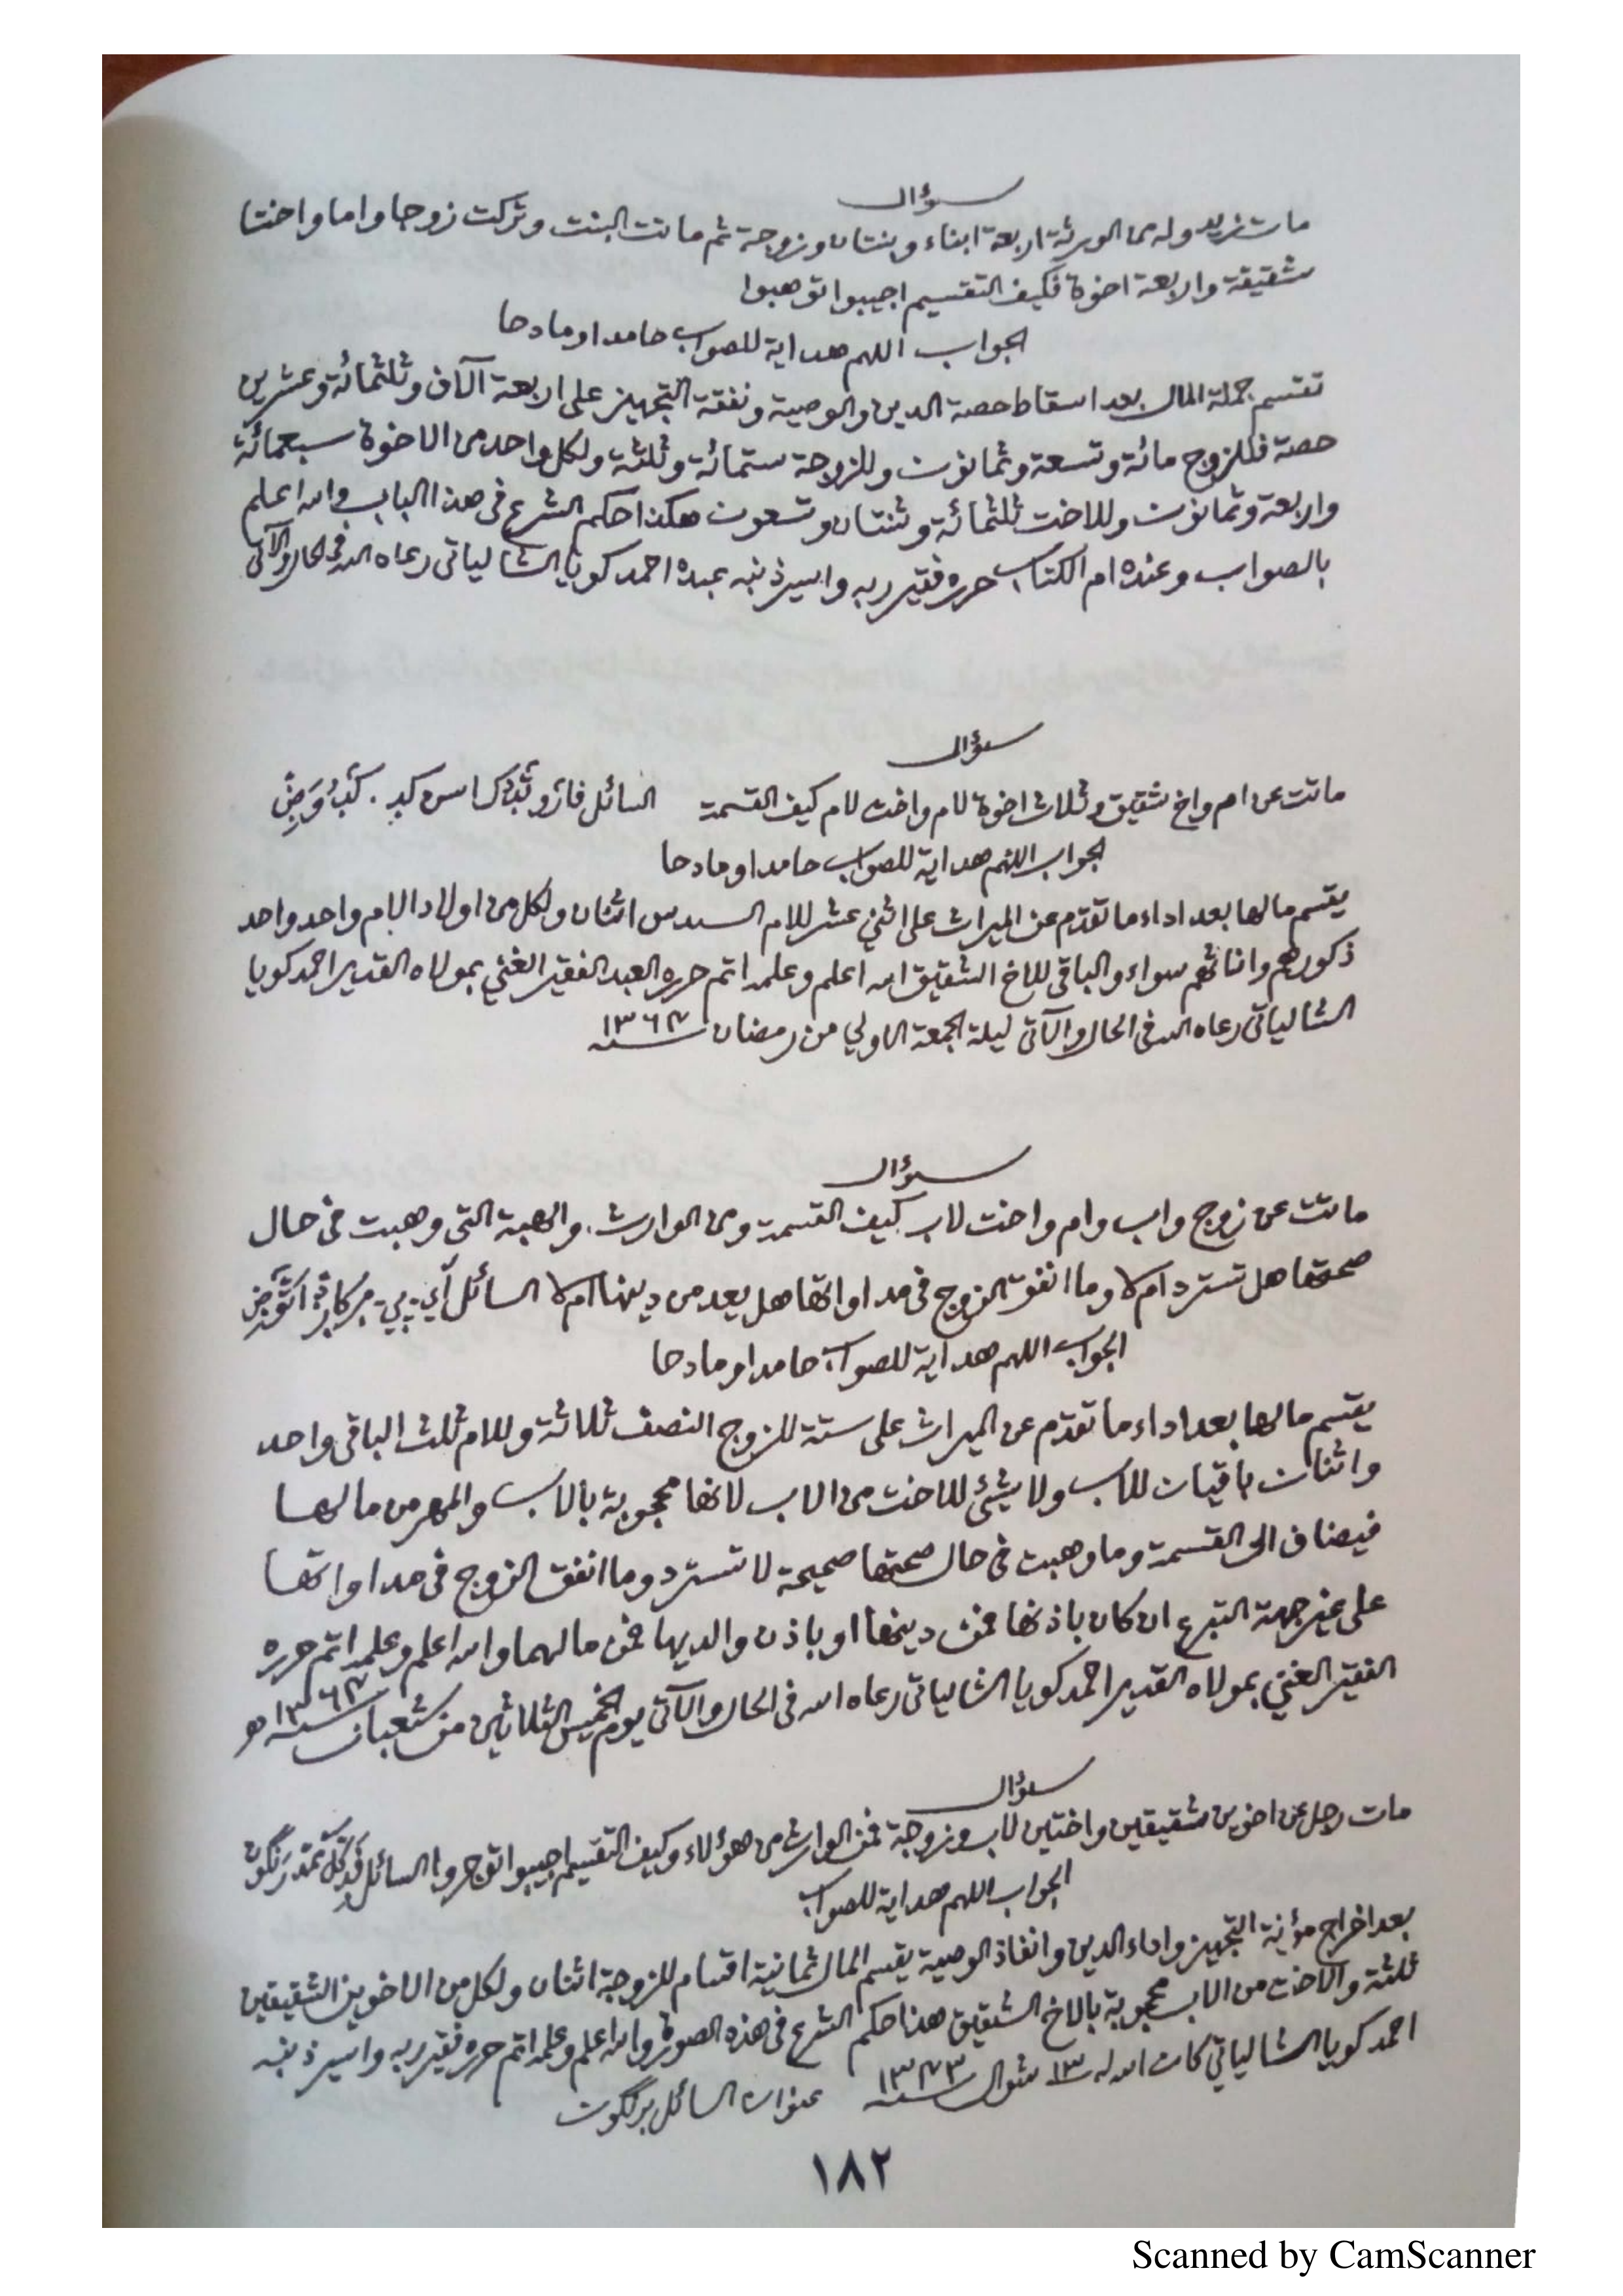 سؤال
مات زيد وله من الورثة اربعة ابناء وبنتان وزوجة ثم ماتت البنت وتركت زوجا واما واختا
شقيقة واربعة اخوة فكيف التقسيم اجيبوا توهبوا
الجواب اللهم هداية للصواب حامدا ومادحا
تقسم جملة المال بعد اسقاط حصة الدين والوصية ونفقة التجهيز على اربعة آلاف وثلثمائة وعشرين
حصة فللزوج مائة وتسعة وثمانون وللزوجة ستمائة وثلثة ولكل واحد من الاخوة سبعمائة
واربعة وثمانون وللاخت ثلثمائة وثنتان وتسعون هكذا حكم الشرع في هذا الباب والله اعلم
بالصواب وعنده ام الكتاب حرره فقير ربه واسير ذنبه عبده احمد كويا الشالياتي رعاه الله في الحال والآتي
سؤال
ماتت عن ام واخ شقيق وثلاث اخوة لام واخت لام كيف القسمة السائل
الجواب اللهم هداية للصواب حامدا ومادحا
يقسم مالها بعد اداء ما تقدم عن الميراث على اثني عشر للام السدس اثنان ولكل من اولاد الام واحد واحد
ذكورهم واناثهم سواء والباقي للاخ الشقيق الله اعلم وعلمه اتم حرره العبد الفقير الغني بمولاه القدير احمد كويا
الشالياتي رعاه الله في الحال والآتي ليلة الجمعة الاولي من رمضان سنة ١٣٦٧
سؤال
ماتت عن زوج واب وام واخت لاب كيف القسمة ومن الوارث. والهبة التي وهبت في حال
صحتها هل تسترد ام لا وما انفق الزوج في مداواتها هل يعد من دينها ام لا السائل
الجواب اللهم هداية للصواب حامدا ومادحا
يقسم مالها بعد اداء ما تقدم عن الميراث على ستة للزوج النصف ثلاثة وللام ثلث الباقي واحد
واثنان باقيات للاب ولا يشئ للاخت من الاب لانها محجوبة بالاب والمهر من مالها
فيضاف الى القسمة وما وهبت في حال صحتها صحيحة لا تسترد وما انفق الزوج في مداواتها
على غير جهة التبرع ان كان باذنها فمن دينها او باذن والديها فمن مالهما والله اعلم وعلمه اتم حرره
الفقير الغني بمولاه القدير احمد كويا الشالياتي رعاه الله في الحال والآتي يوم الخميس الثلاثين من شعبان سنة ١٣٦٧ هـ
سؤال
مات رجل عن اخوين شقيقين واختين لاب وزوجة فمن الوارث من هؤلاء وكيف التقسيم اجيبوا توجروا السائل
الجواب اللهم هداية للصواب
بعد اخراج مؤنة التجهيز واداء الدين وانفاذ الوصية يقسم المال ثمانية اقسام للزوجة اثنان ولكل من الاخوين الشقيقين
ثلثة والاخت من الاب محجوبة بالاخ الشقيق هذا حكم الشرع في هذه الصورة والله اعلم وعلمه اتم حرره فقير ربه واسير ذنبه
احمد كويا الشالياتي كان الله له ١٣ شوال سنة ١٣٧٣ عنوان السائل
١٨٢
Scanned by CamScanner